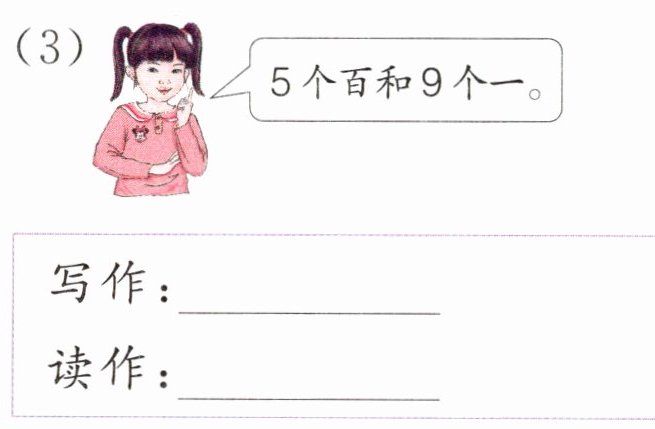 (3)
5个百和9个一。
写作：
读作：